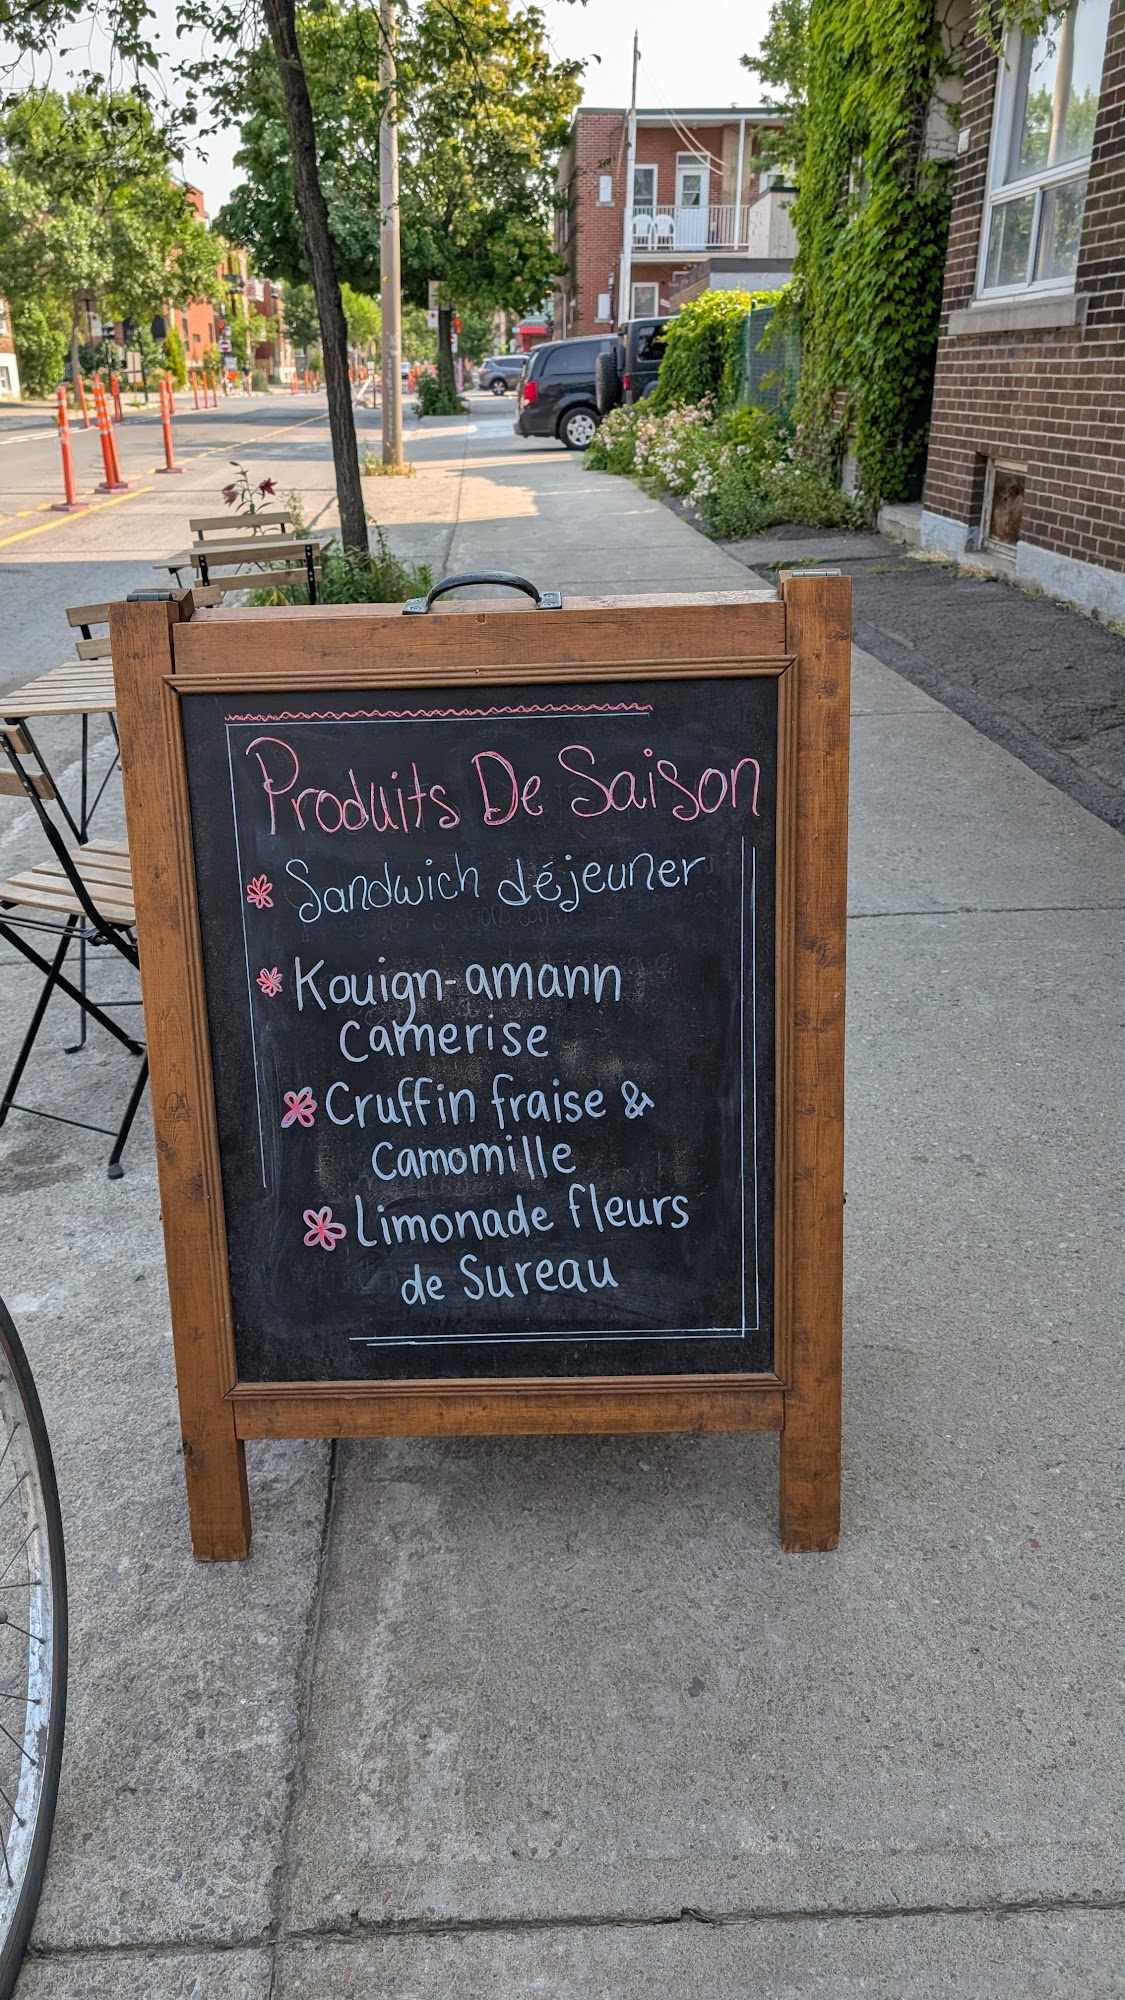 Produits De Saison
Sandwich déjeuner
Kouign-amann
Camerise
Cruffin fraise &
Camomille
Limonade fleurs
de Sureau